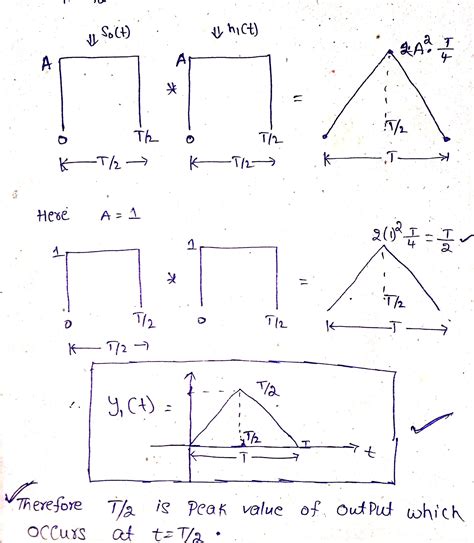 ⇓ S₀(t) ⇓ h₁(t)
A A 2A². T/4
* =
0 T/2 0 T/2 T/2
K—T/2→ K—T/2→ K—T—→
Here A = 1
1 1 2(1)² T/4 = T/2 ✓
* =
0 T/2 0 T/2 T/2
K—T/2→ K—T—→
∴ y₁(t) = T/2
T/2 T → t
T
✓ Therefore T/2 is peak value of output which
occurs at t=T/2 .